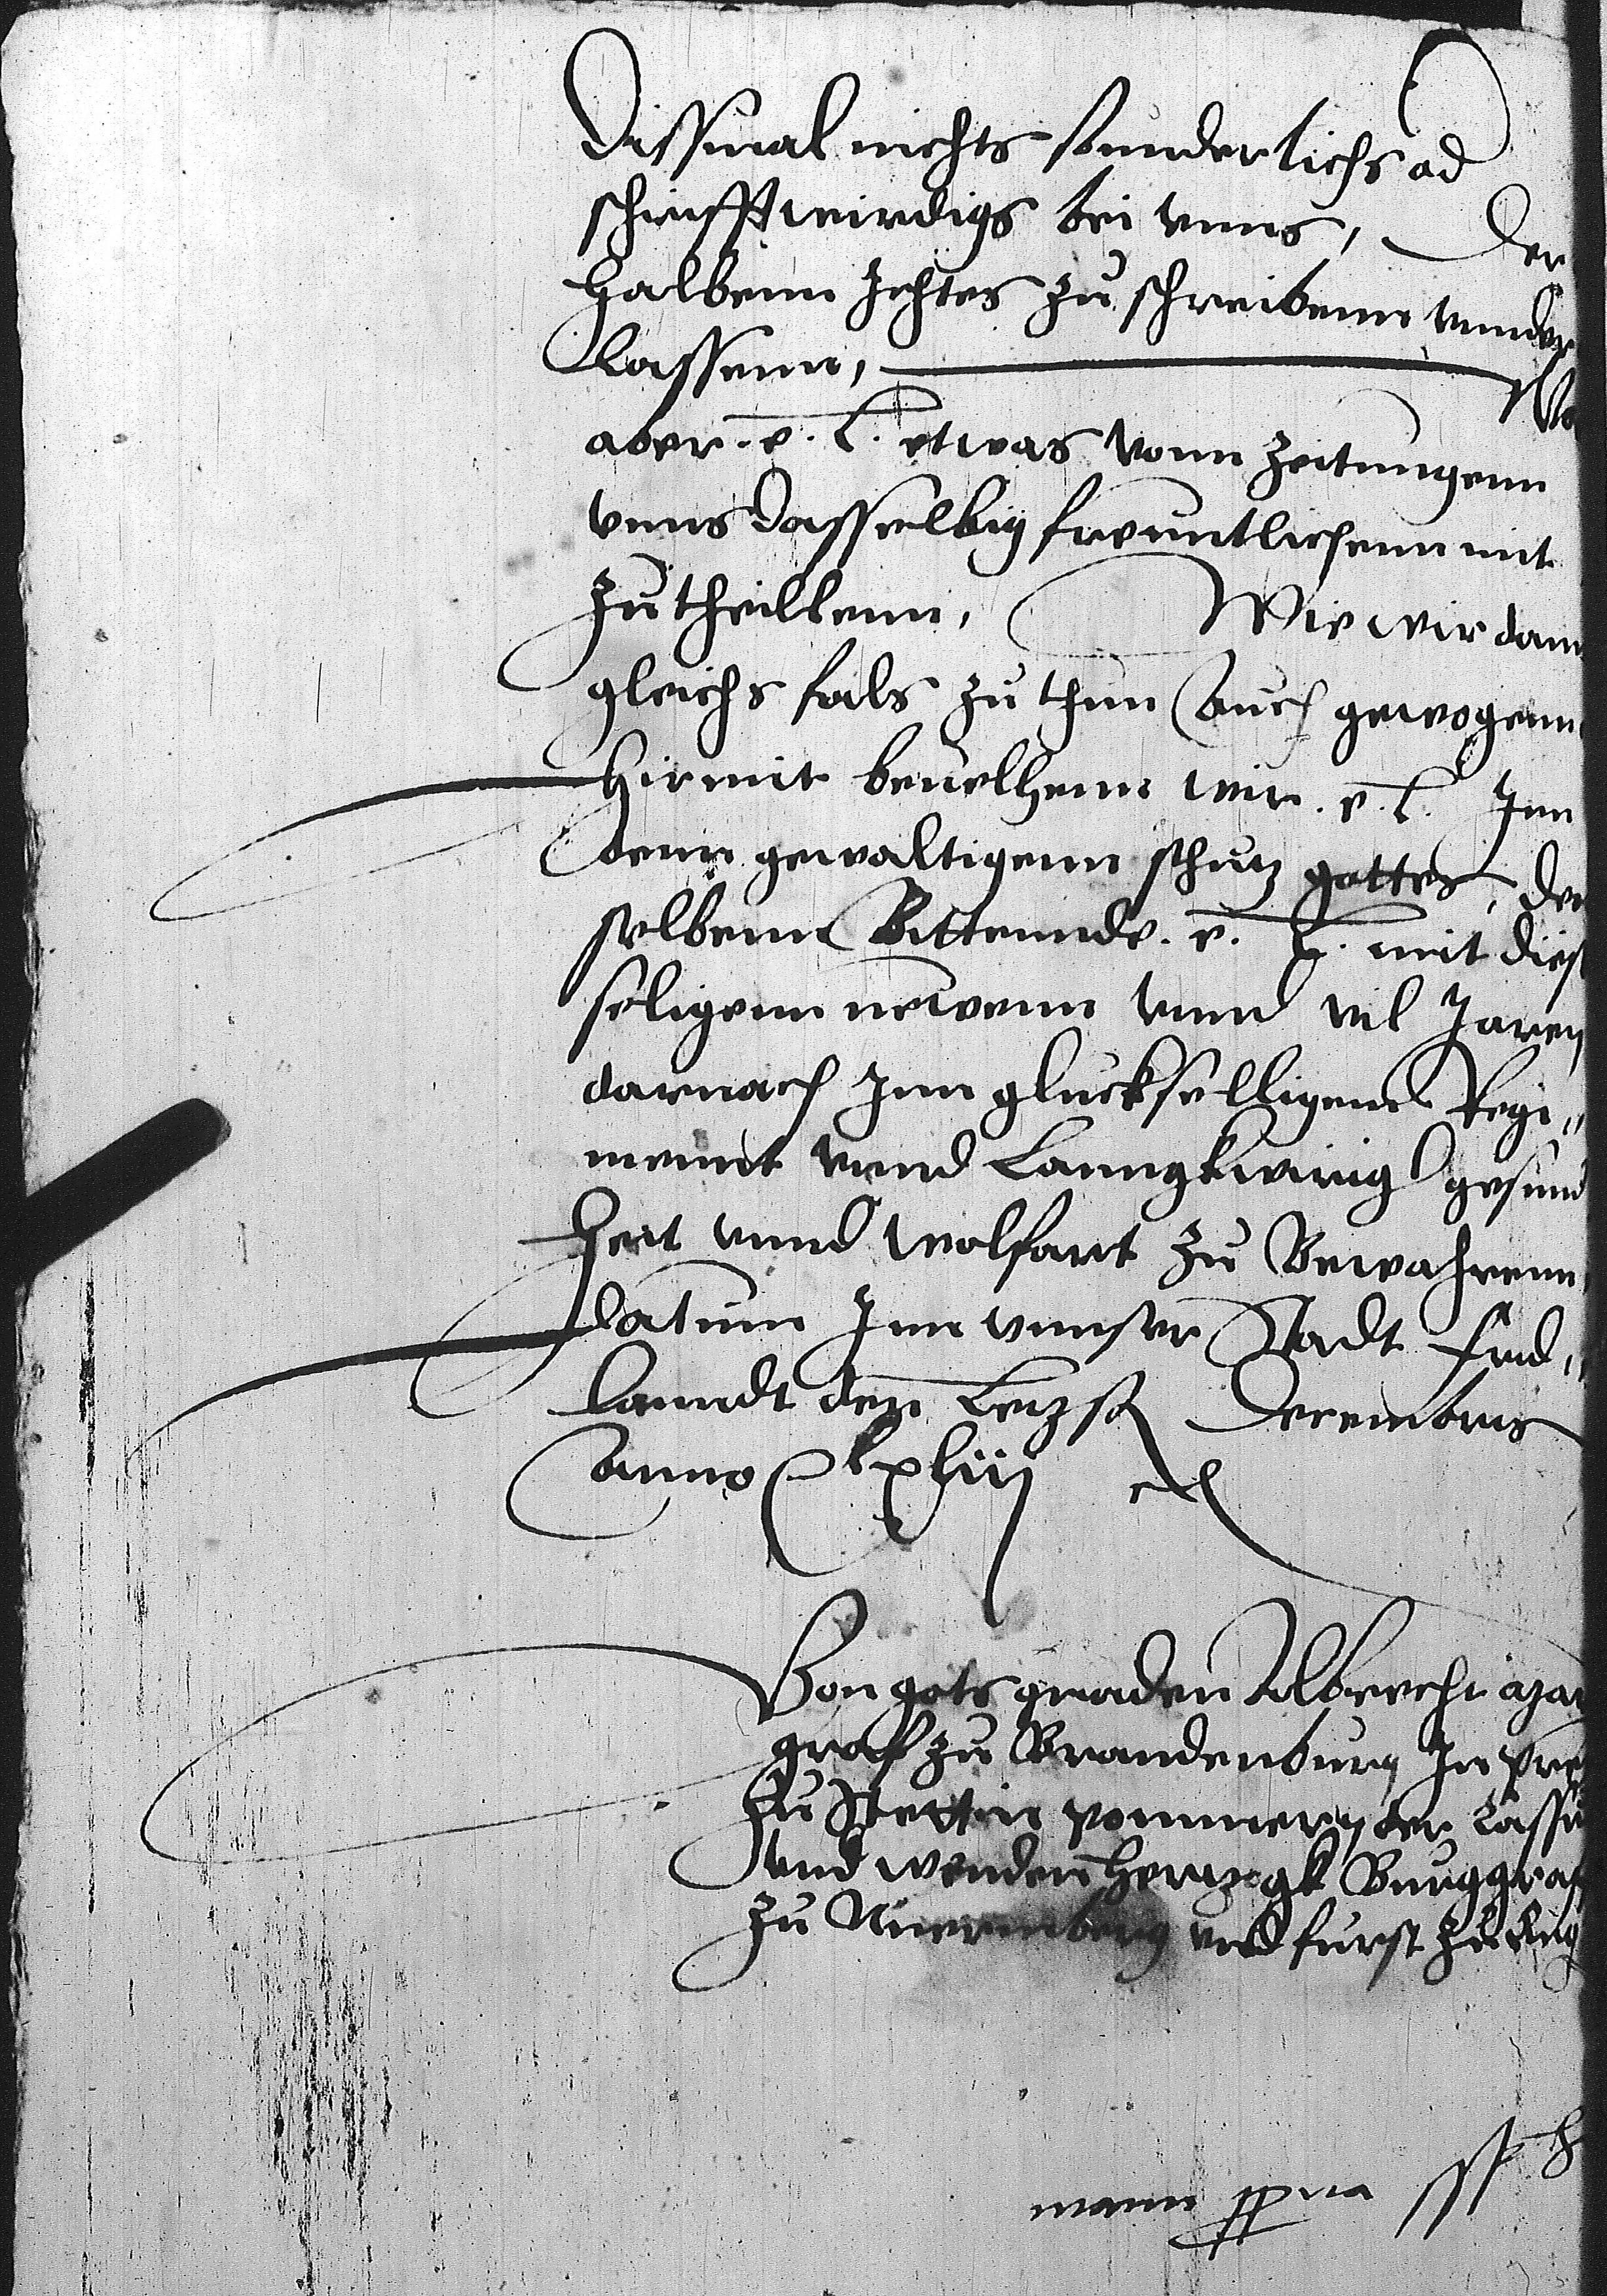 dissmal nichts sunderlichs od
schriefftwirdigs bei vnns, Der
halbenn Ichtes zu schreibenn vnnder
lassenn, Wo
aber .e. l. etwas vonn zeitungenn
vnns dasselbig freuntlichenn mit
zutheillenn, Wie wir dann
gleichs fals zu thun auch gewogenn
Hirmit beuelhenn wir .e. l. Inn
denn gewaltigenn schutz gottes, den
selbenn Bittennde .e. l. mit dies
seligenn newenn vnnd vil Jaren
darnach Inn gluckselligenn Regi„
mennt vnnd Lanngkwirig gesund
heit vnnd wolfart zu Bewahrenn
Datum Inn vnnser Stadt frid„
lanndt den Letzst Decembris
Anno xliij
Von gots gnaden Albrecht Mar
graf zu Brandenburg In Preu
zu Stettin pommern der Cassu
vnd wenden Hertzogk Burggraf
zu Nuermberg vnd furst zu Rug
mann ppria sst